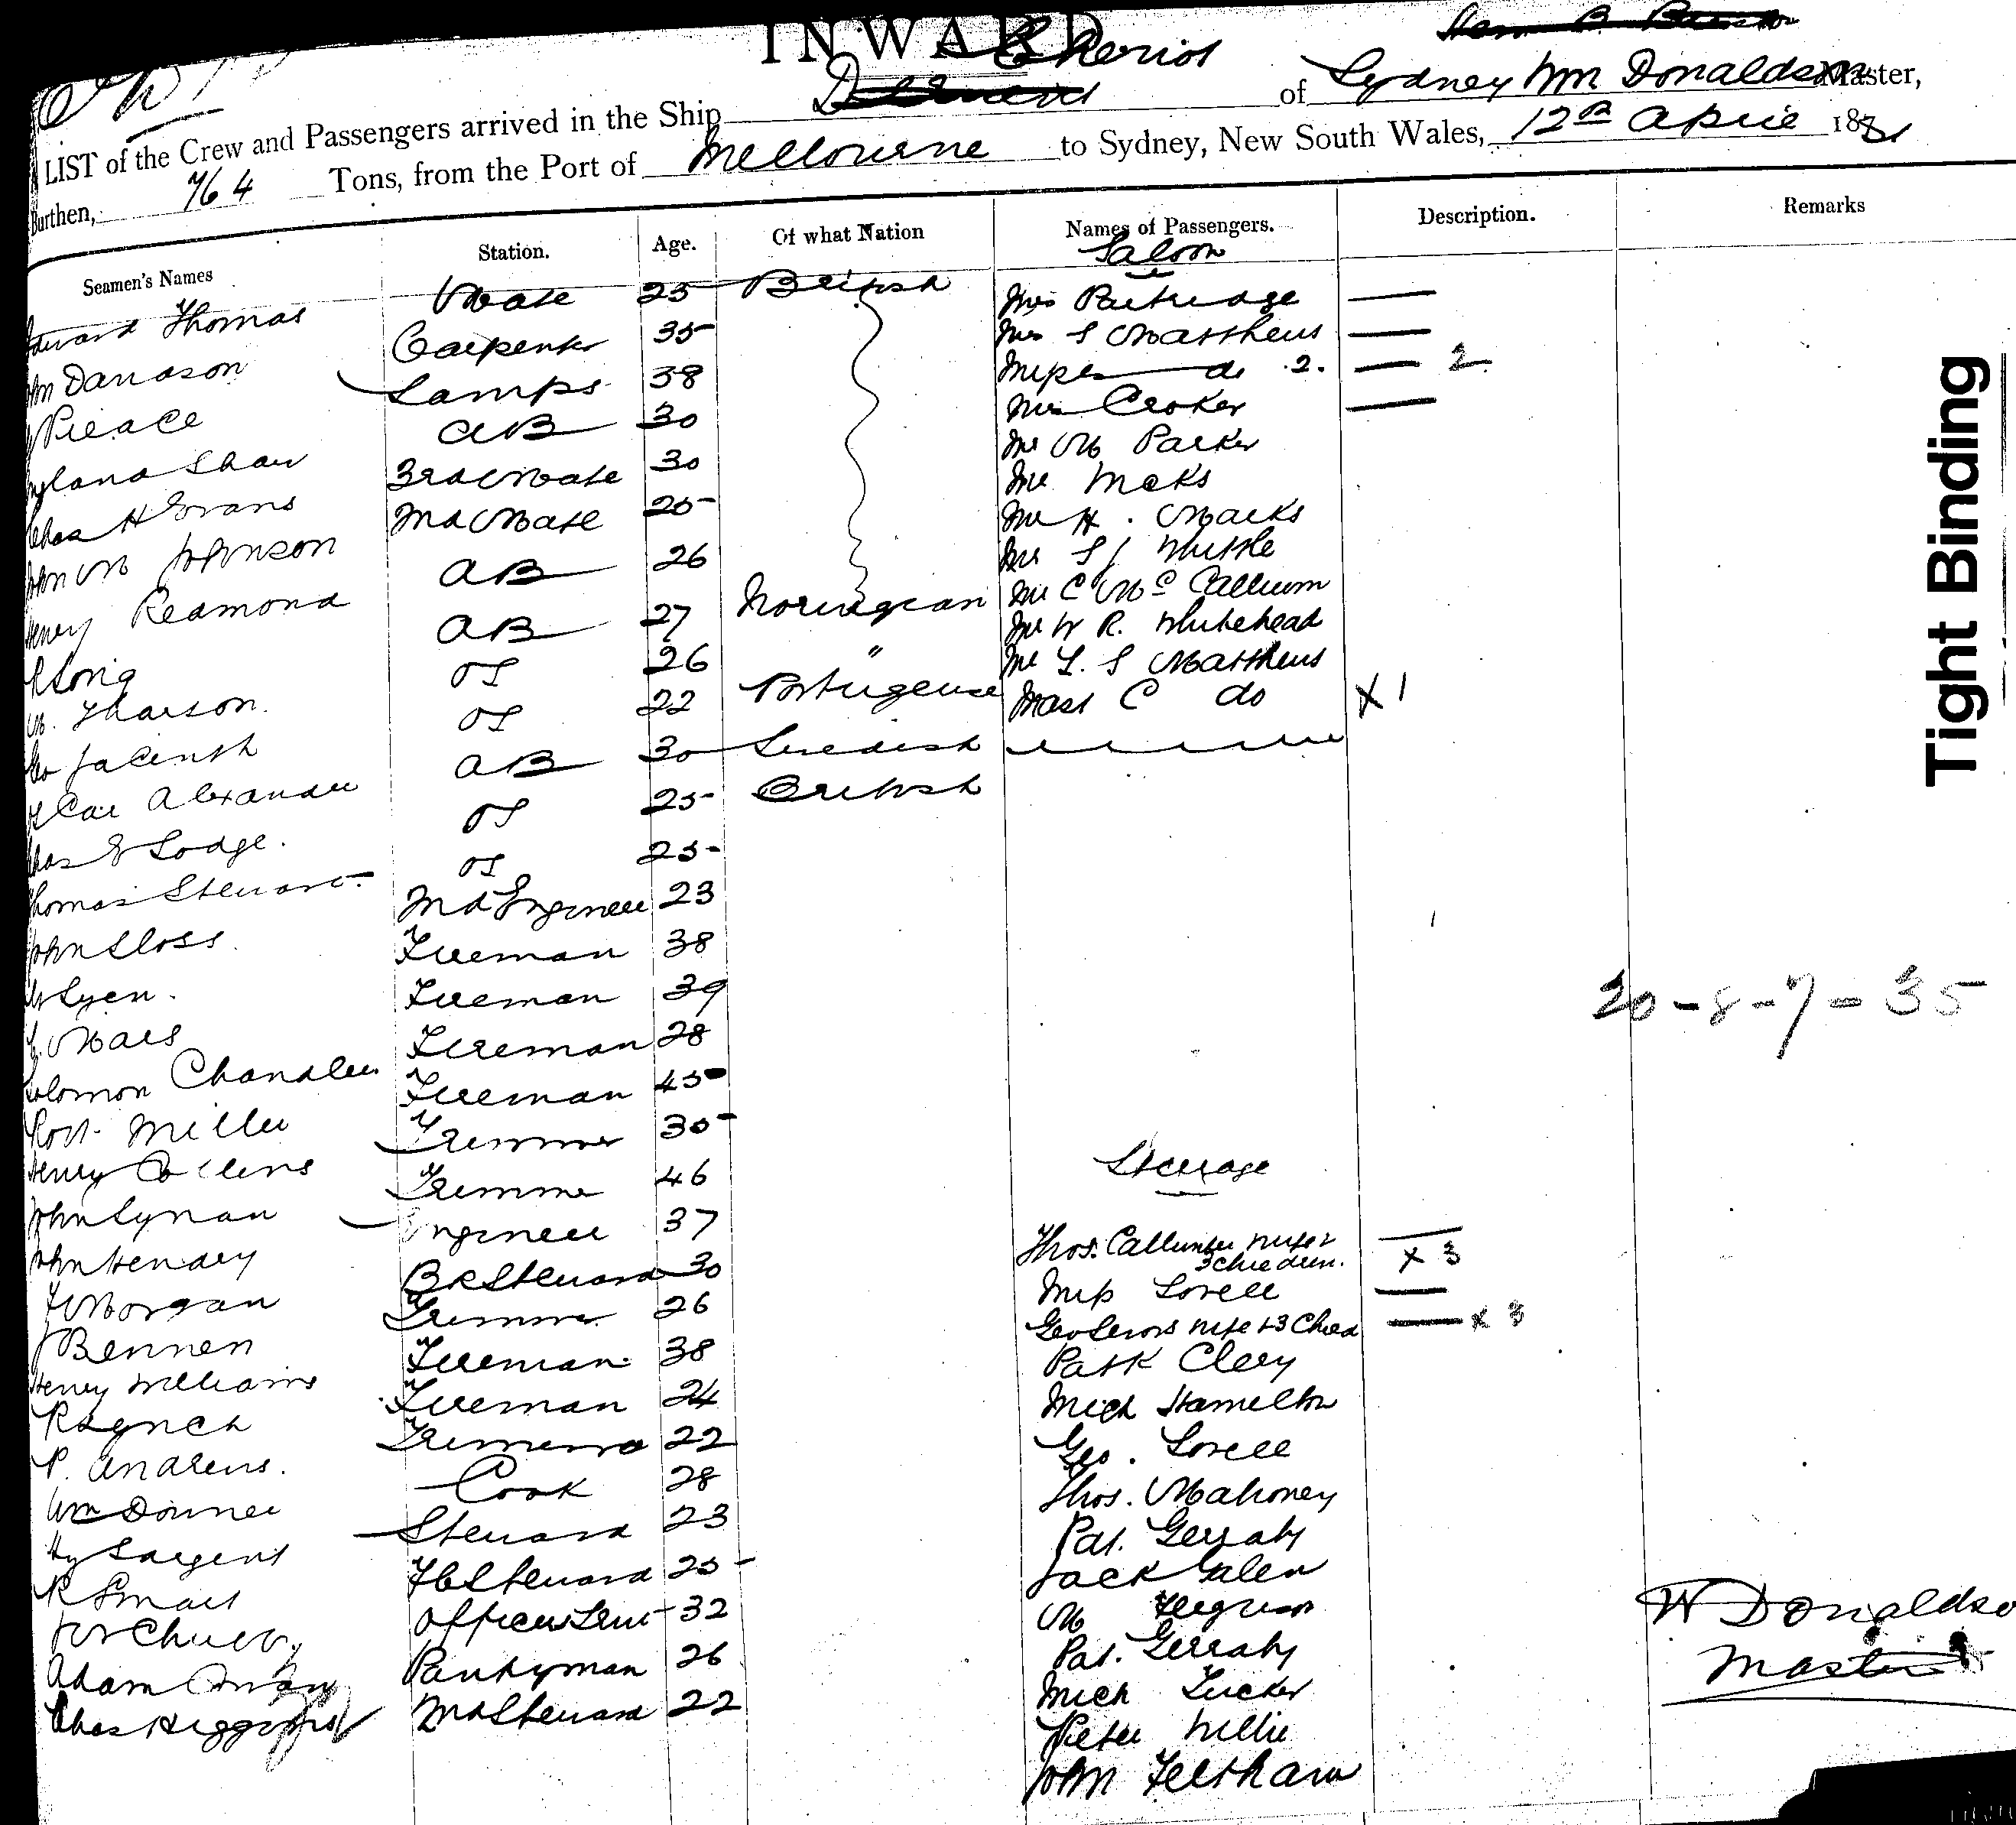 INWARD
Cheviot
of Sydney Wm Donaldson Master,
LIST of the Crew and Passengers arrived in the Ship
Burthen, 764 Tons, from the Port of Melbourne to Sydney, New South Wales, 12th April 1881
Seamen's Names Station. Age. Of what Nation Names of Passengers. Description. Remarks
Saloon
Edward Thomas Mate 25 British Mrs Partridge —
Wm Danason Carpenter 35 Mrs S Matthews —
Pierce Lamps 38 Misses do 2. — 2
Shaw AB 30 Mrs Croker —
Chas H Evans 3rd Mate 30 Mr M Parker
John M Johnson 2nd Mate 25 Mr Meks
Henry Redmond AB 26 Mr H. Marks
AB 27 Norwegian Mr S J Whittle
M. Tharson. OS 26 " Mr C McCallum
Geo Jacinth OS 22 Portugeuse Mr W R. Whitehead
Oscar Alexander AB 30 Swedish Mr L. S Matthews
Chas E Lodge. OS 25 British Mast C do X 1
Thomas Stewart OS 25
John Sloss 2nd Engineer 23
Lyen. Fireman 38
Mars Fireman 39
Solomon Chandler Fireman 28
Robt. Miller Fireman 45
Henry Collins Trimmer 30
John Lynan Trimmer 46
John Hendey Engineer 37
Morgan BR Steward 30
Bennen Trimmer 26
Henry Williams Fireman 38
R Lynch Fireman 24
P. Andrews. Trimmer 22
Wm Downee Cook 28
Hy Sargent Steward 23
R Smart FC Steward 25
Officers Servt 32
Adam Pantryman 26
Chas Higgins 2nd Steward 22
20-8-7=35
Steerage
Thos. Callunder wife &
3 children. X 3
Miss Lovell —
Geo wife & 3 Child — X 3
Patk Clery
Mich Hamelton
Geo. Lovell
Thos. Mahoney
Pat. Gerraty
Jack Galen
M Ferguson
Pat. Gerraty
Mich Tucker
Peter Willie
John Feltham
W Donaldso
Master
Tight Binding